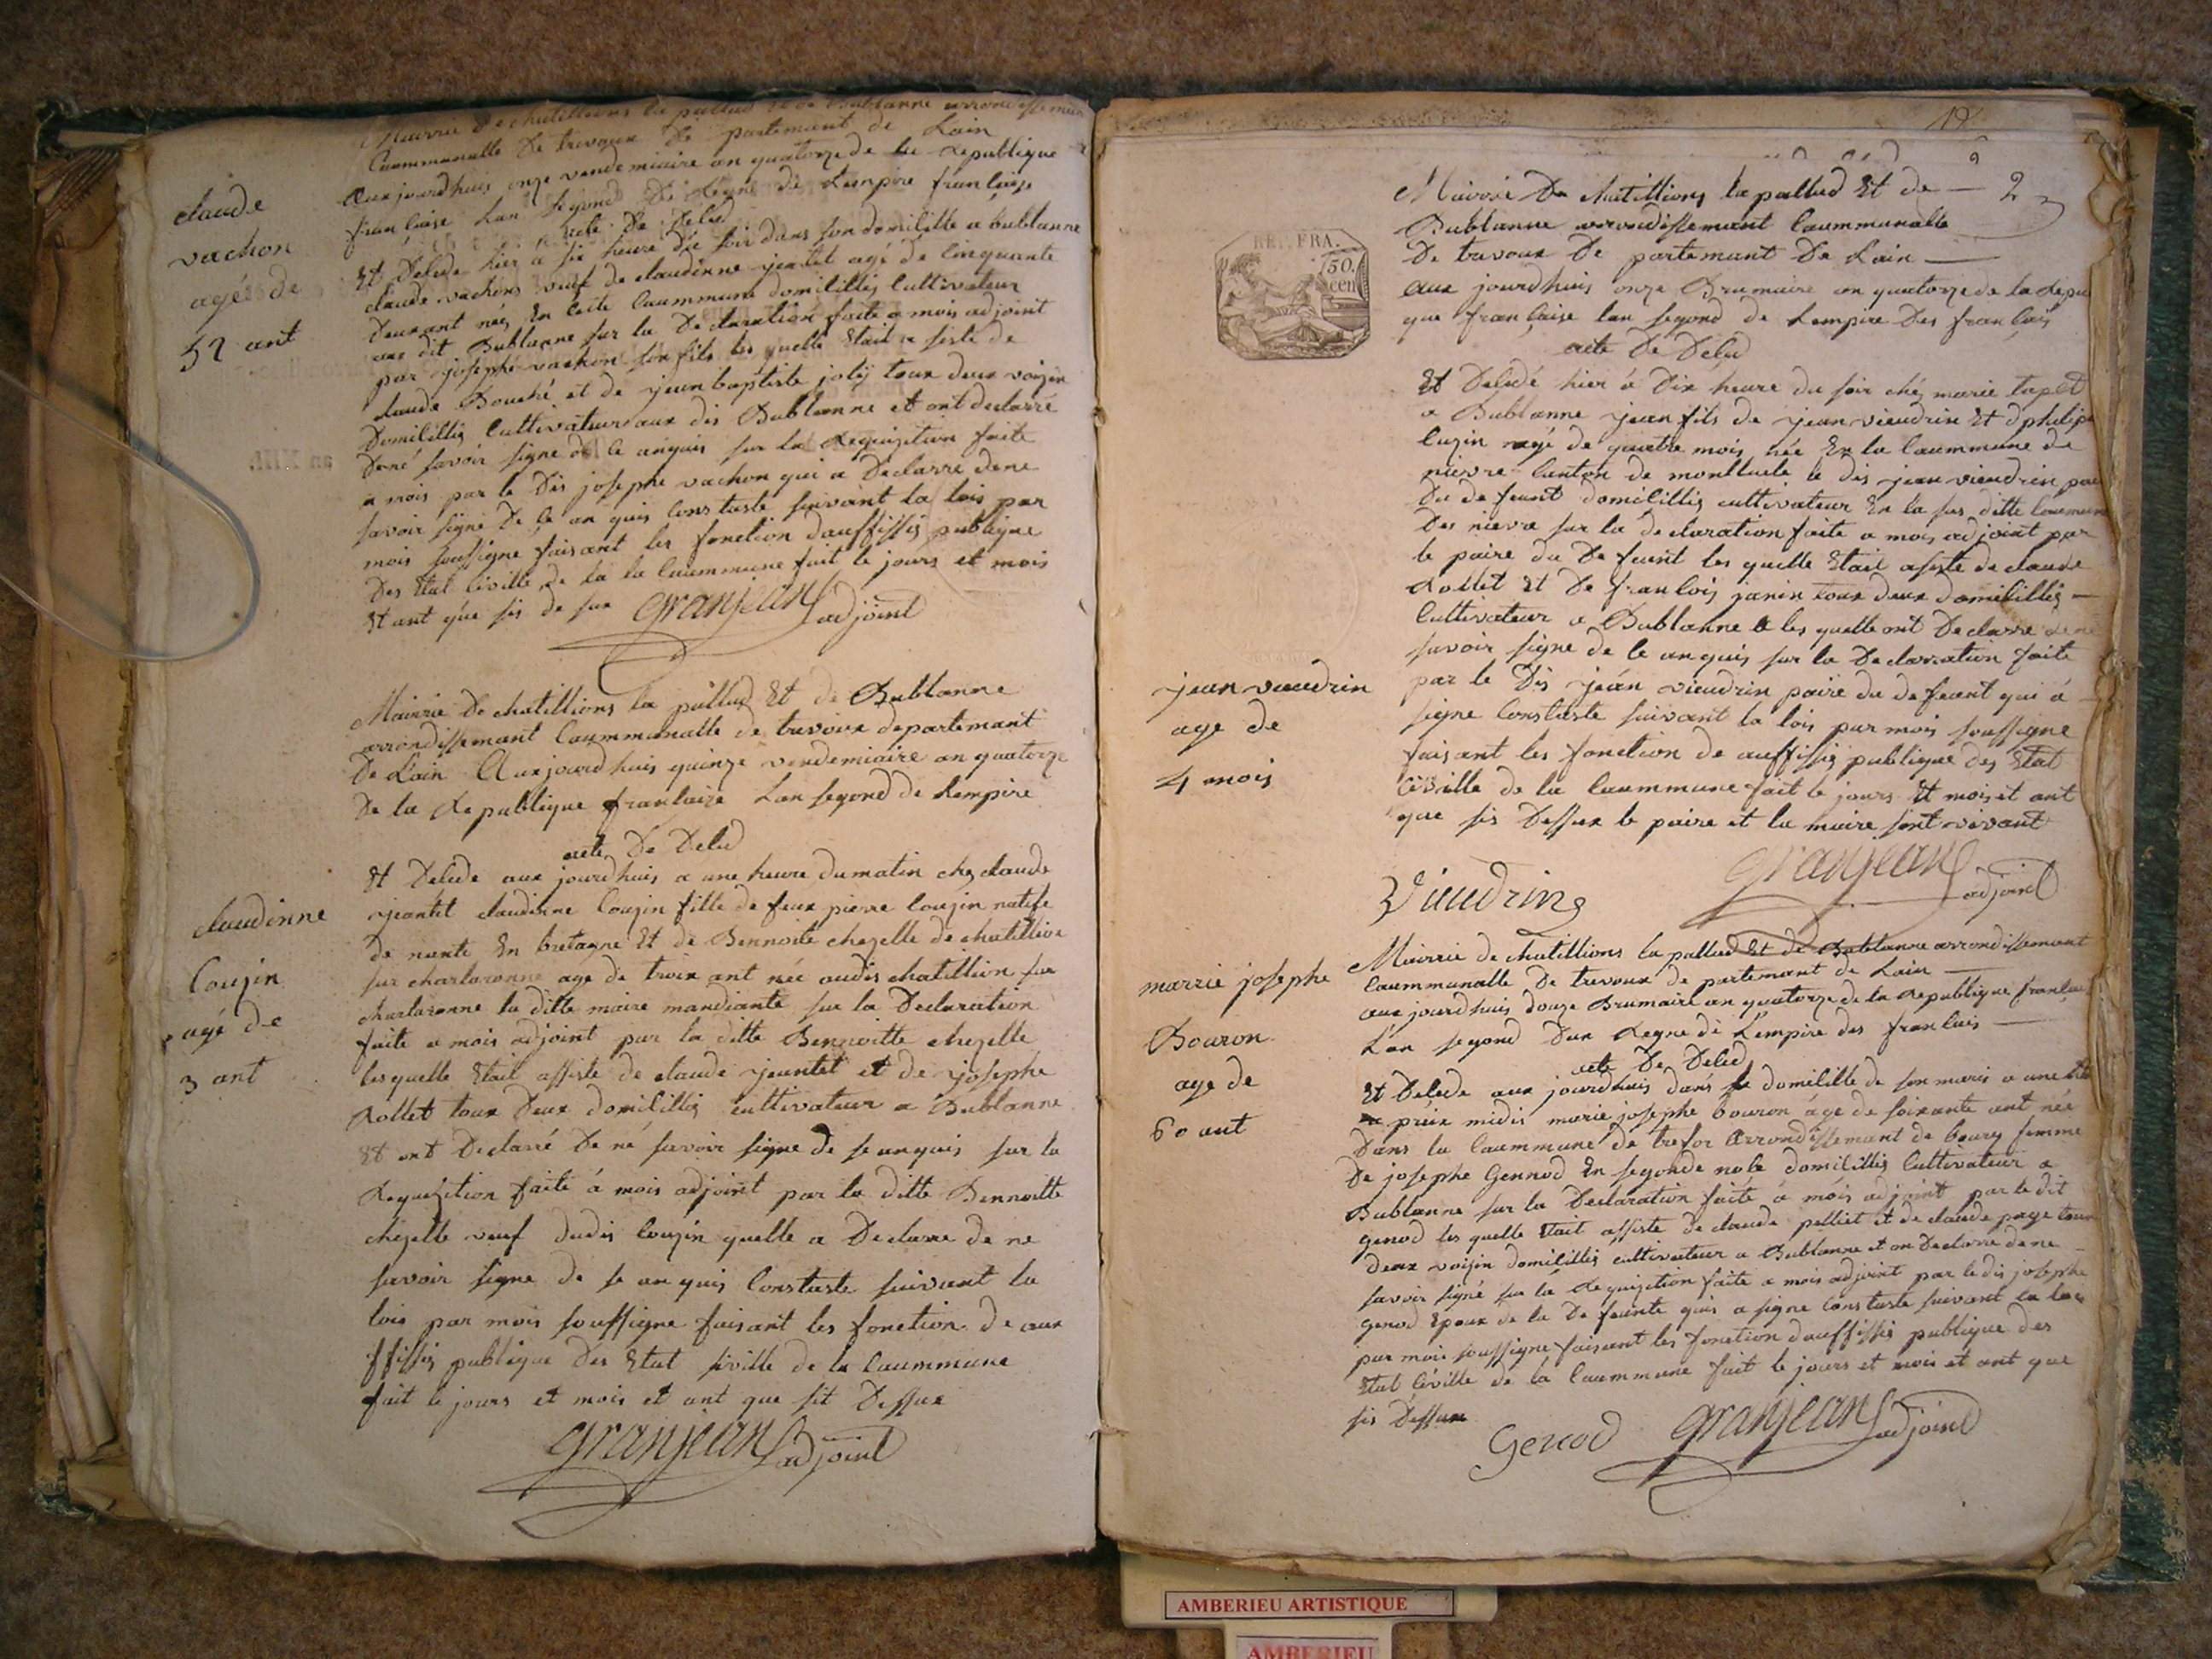 Mairrie de chatillions la pallud Et de Bublanne arrondissemant
Caummunalle De trevoux De partemant de Lain
aux jourdhuis onze vendemiaire an quatorze de la Republique
franlaise Lan segond De Regne de Lempire franlaise
acte De Deled
Et Delede hier a six heure die soir dans son domilille a bublanne
claude vachons veuf de claudinne jeantet agé de Cinquante
Deuxant néé En Cette Caummune domilillis Cultivateur
aux dit Bublanne sur la Declaration faite a mois adjoint
par josephe vachon son fils les quelle Etait a siste de
claude Bouché et de jean baptiste joly toux deux voizin
Domilillis Cultivateur aux dis Bublanne et ont declarré
Dené savoir signe de le anquis sur la Requizition faite
a mois par le Dis josephe vachon qui a Declarre dene
savoir signé De le an quis Constaste suivant la lois par
mois soussigne faisant les fonction dauffissis publique
Des Etat Civille de la la Caummune fait le jours et mois
Et ant que sis de sux Granjean adjoint
claude
vachon
agé de
52 ant
Mairrie De chatillions la pallud Et de Bublanne
arrondissemant Caummunalle de trevoux departemant
De Lain Aux jourd huis quinze vendemiaire an quatorze
De la Republique franlaize Lan segond de Lempire
acte De Deled
Et Delede aux jourdhuis a une heure du matin chez claude
jeantet claudinne Couzin fille de feux pierre Couzin natife
de nante En bretagne Et de Bennoite chezelle de chatillion
sur charlaronne age de troix ant née audis chatillion sur
charlaronne la ditte maire mandiante sur la Declaration
faite a mois adjoint par la ditte Bennoitte chezelle
les quelle Etait assiste de claude jeantet et de josephe
Rollet toux Deux domilillis cultivateur a Bublanne
Et ont Declarré De né savoir signe de se anquis sur la
Requizition faite á mois adjoint par la ditte Bennoitte
chezelle veuf dudis Couzin quelle a Declarre de ne
savoir signe de se an quis Constaste suivant la
lois par mois soussigne faisant les fonction de aux
ffissis publique Des Etat siville de la Caummune
fait le jours et mois et ant que sit Dessux
Granjean adjoint
claudinne
Couzin
agé de
3 ant
19
2
REP. FRA.
50.
cen
Mairrie De chatillions la pallud Et de
Bublanne arrondissemant Caummunalle
De trevoux De partemant De Lain
aux jourdhuis onze Brumaire an quatorze de la Repu
que franlaise lan segond de Lempire Des franlais
acte De Deled
Et Deledé hier á Dix heure du soir ché marie tapet
a Bublanne jean fils de jean vieudrin Et d philipe
Cuzin agé de quatre mois née En la Caummune de
nievre Canton de montluele le dis jean vieudrin paire
Du de feunt domilillis cultivateur En la sus ditte Coumune
Des nievre sur la declaration faite a mois adjoint par
le paire du De feunt les quelle Etait asisté de claude
Rollet Et De franlois janin toux deux domilillis
Cultivateur a Bublanne les quelle ont Declarre dene
savoir signe de le anquis sur la Declaration faite
par le Dis jeán vieudrin paire du defeunt qui á
signe Constaste suivant la lois par mois soussigne
faisant les fonction de auffissis publique des Etat
Civille de la Caummune fait le jours Et mois et ant
que sis Dessux le paire et la maire sont vivant
Vieudrin Granjean adjoint
jean vieudrin
age de
4 mois
Mairrie de chatillions la pallud Et de Bublanne arrondissemant
Caummunalle De trevoux de partemant de Lain
aux jourdhuis douze Brumaire an quatorze de la Republique franlais
Lan segond Dux Regne de L'empire des franlais
acte De Deled
Et Delede aux jourdhuis dans le domilille de son maris a une
a préix midis marie josephe bouron áge de soixante ant née
Dans la Caummune de trefor arrondissemant de bourg femme
De josephe Gennod En segonde nole domilillis Cultivateur a
Bublanne sur la Declaration faité á mois adjoint par le dit
genod les quelle Etait assiste de claude pelliet et de claude page toux
deux voizin domilillis cultivateur a Bublanne et on Declarre dene
savoir signé sur la Requizition faite a mois adjoint par le dis josephe
genod Epoux de la De feunte quis a signe Constaste suivant la lois
par mois soussigne faisant les fonction dauffissis publique des
Etat Civille de la Caummune fait le jours et mois et ant que
sis Dessux Genod Granjean adjoint
marrie josephe
Bouron
age de
60 ant
AMBERIEU ARTISTIQUE
AMBERIEU